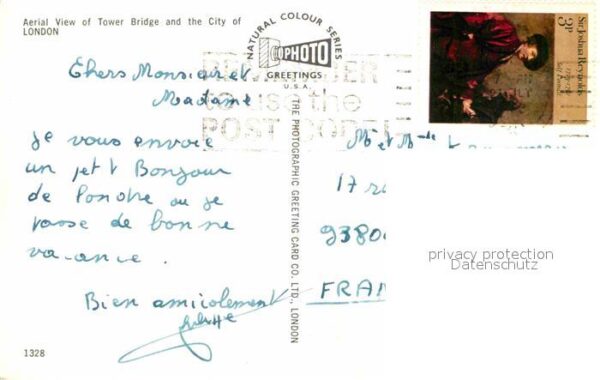 Aerial View of Tower Bridge and the City of
LONDON
Chers Monsieur et
Madame
Je vous envoie
un petit Bonjour
de Londre ou je
passe de bonne
vacance.
Bien amicalement
1328
NATURAL COLOUR SERIES
PHOTO
GREETINGS
U.S.A.
THE PHOTOGRAPHIC GREETING CARD CO. LTD., LONDON
REMEMBER
to use the
POST CODE
Sir Joshua Reynolds
1723-1792
Self Portrait
3P
Mr et Mme
17
9380
FRAN
privacy protection
Datenschutz